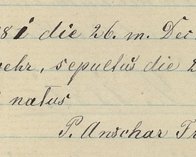 81 die 26. m. Dec
ehr, sepultus die 2
natus
P. Anschar Tr